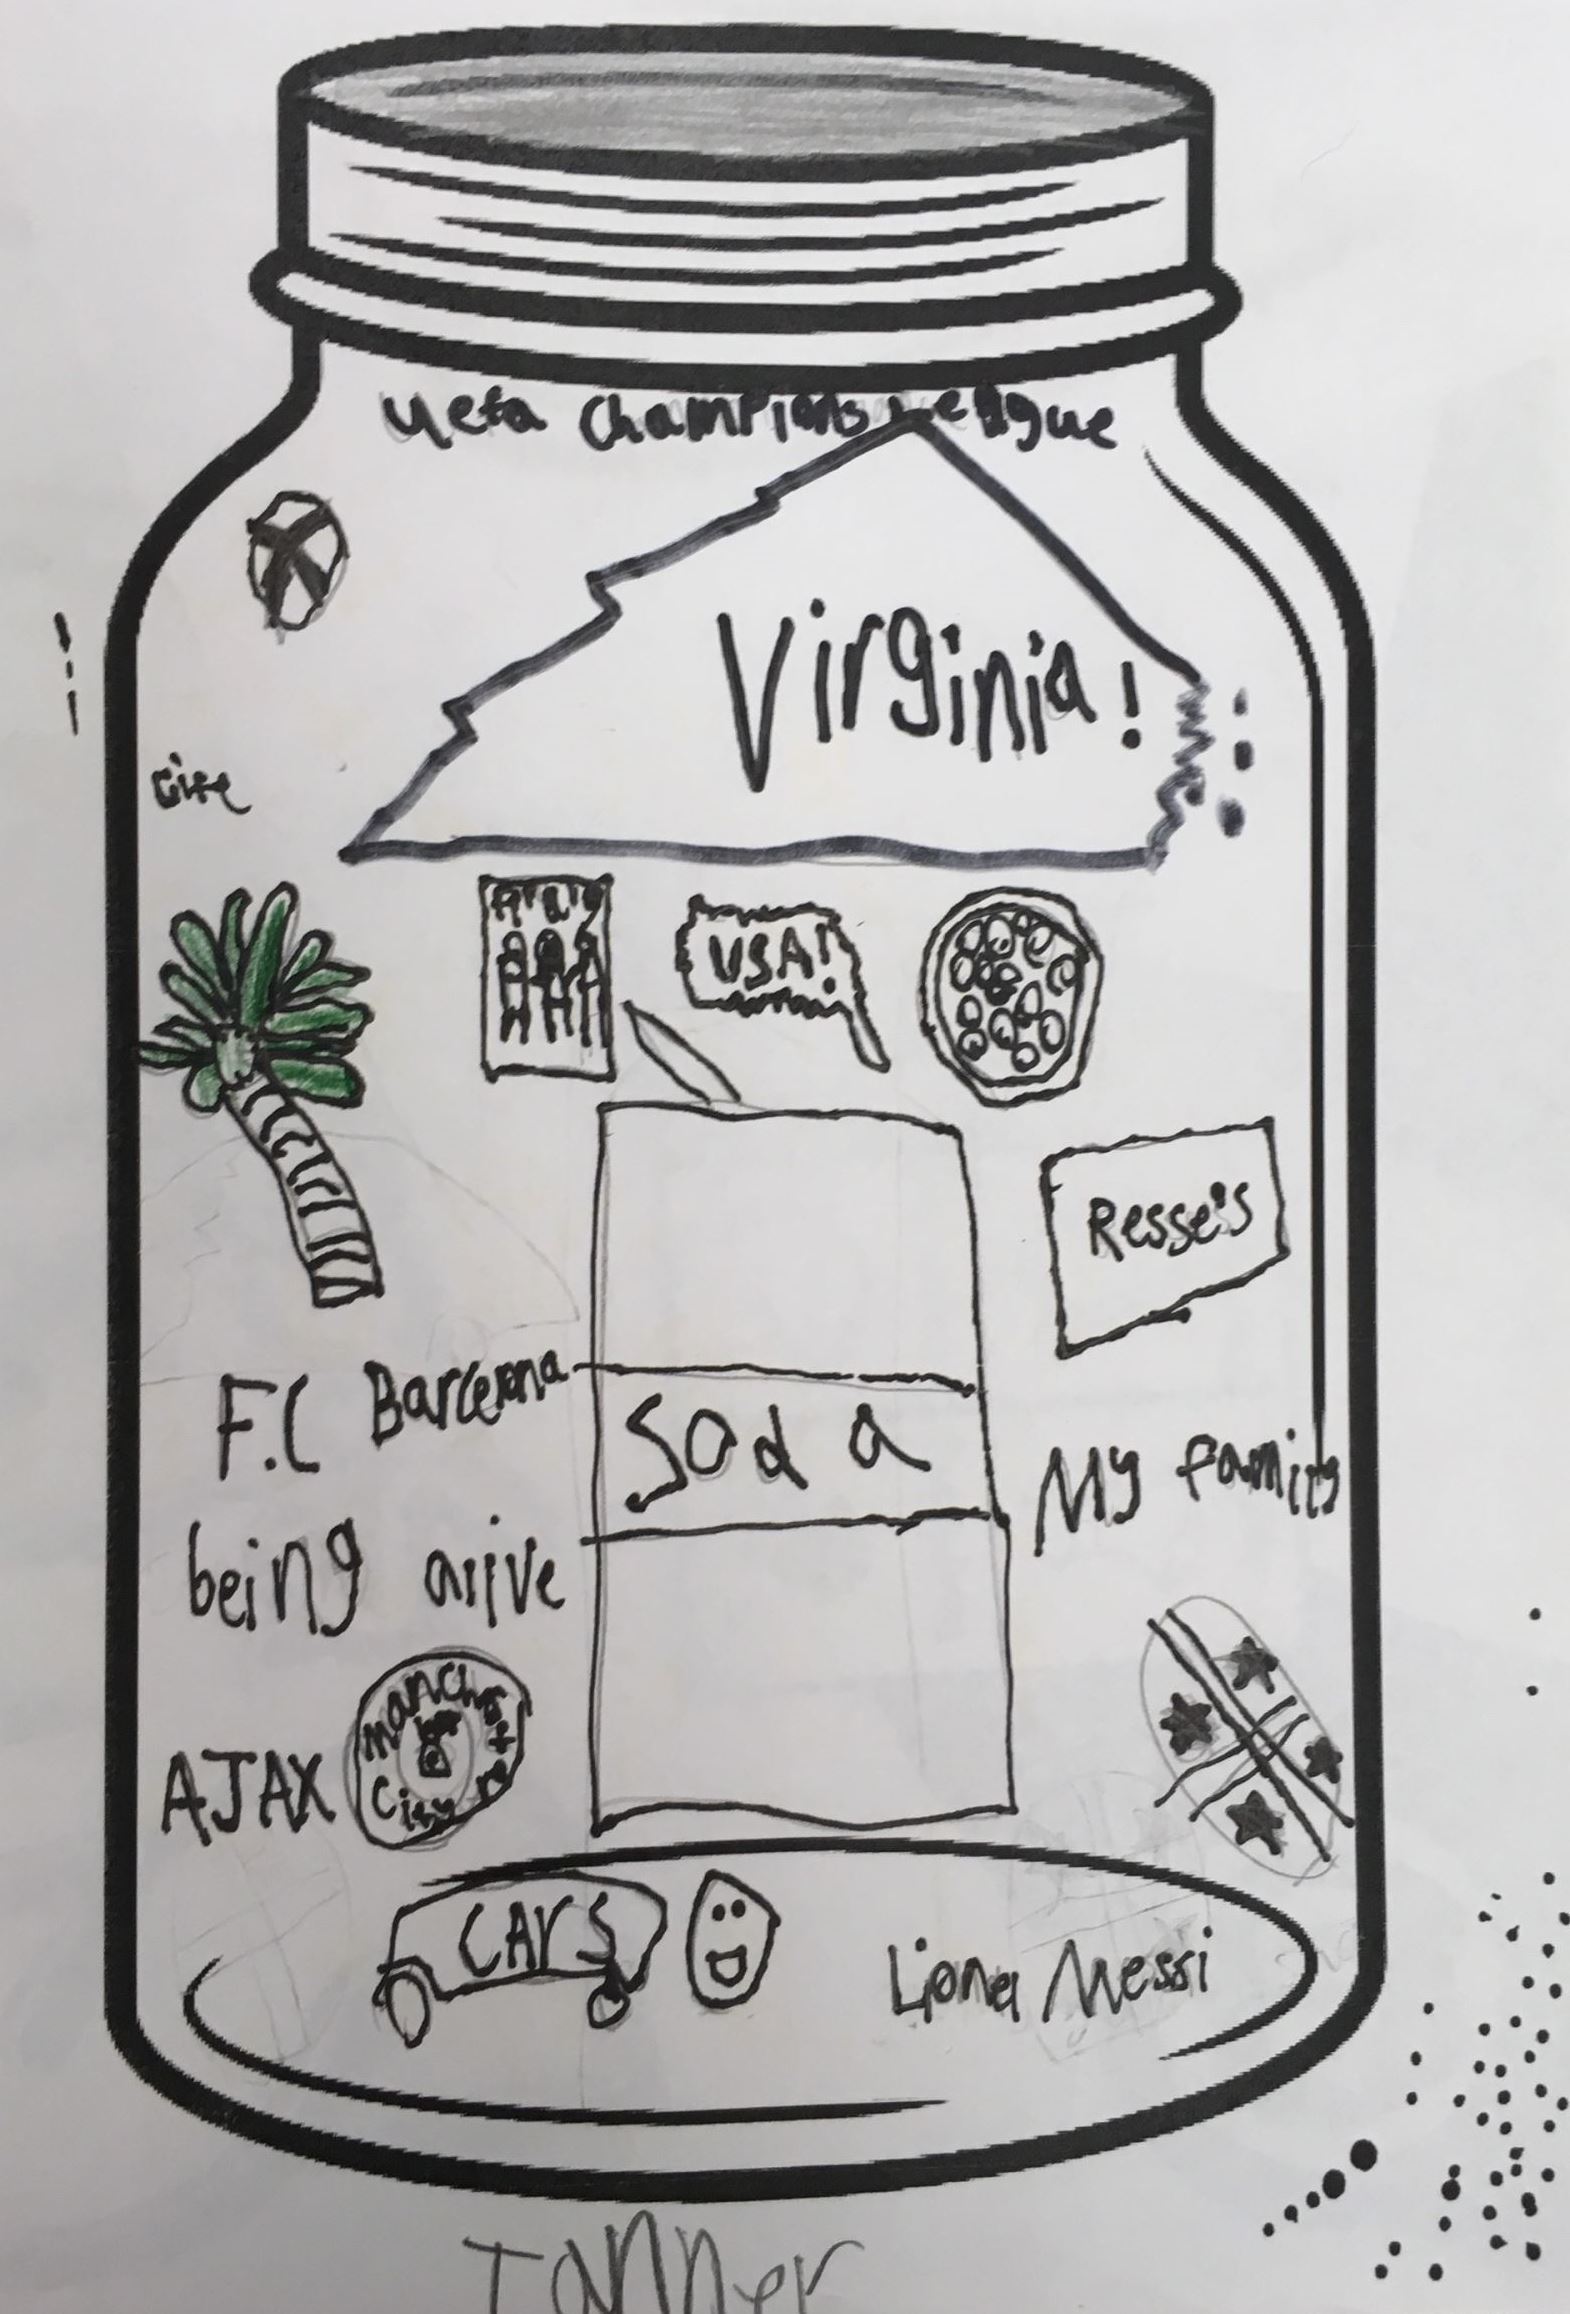 Uefa Champions League
Virginia!
life
USA!
Resse's
F.C Barcelona
Soda
My family
being alive
AJAX
Manchester City
CArS
Lionel Messi
Tanner